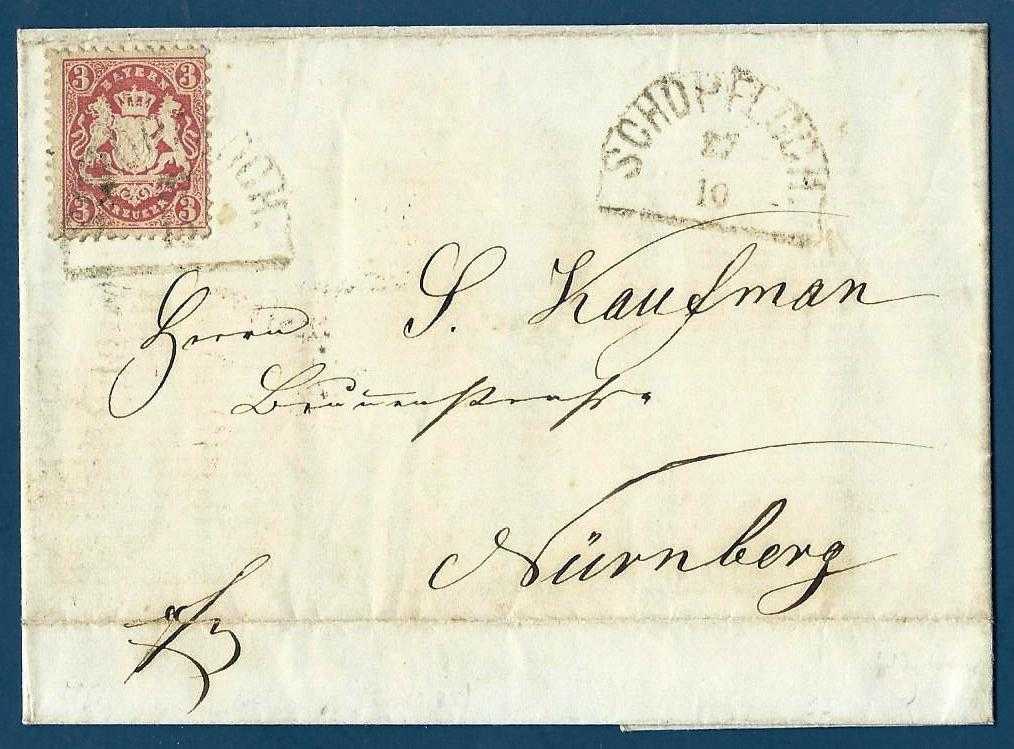 3 BAYERN 3
3 KREUZER 3
SCHOPFLOCH.
27
10
Herrn S. Kaufman
Nürnberg